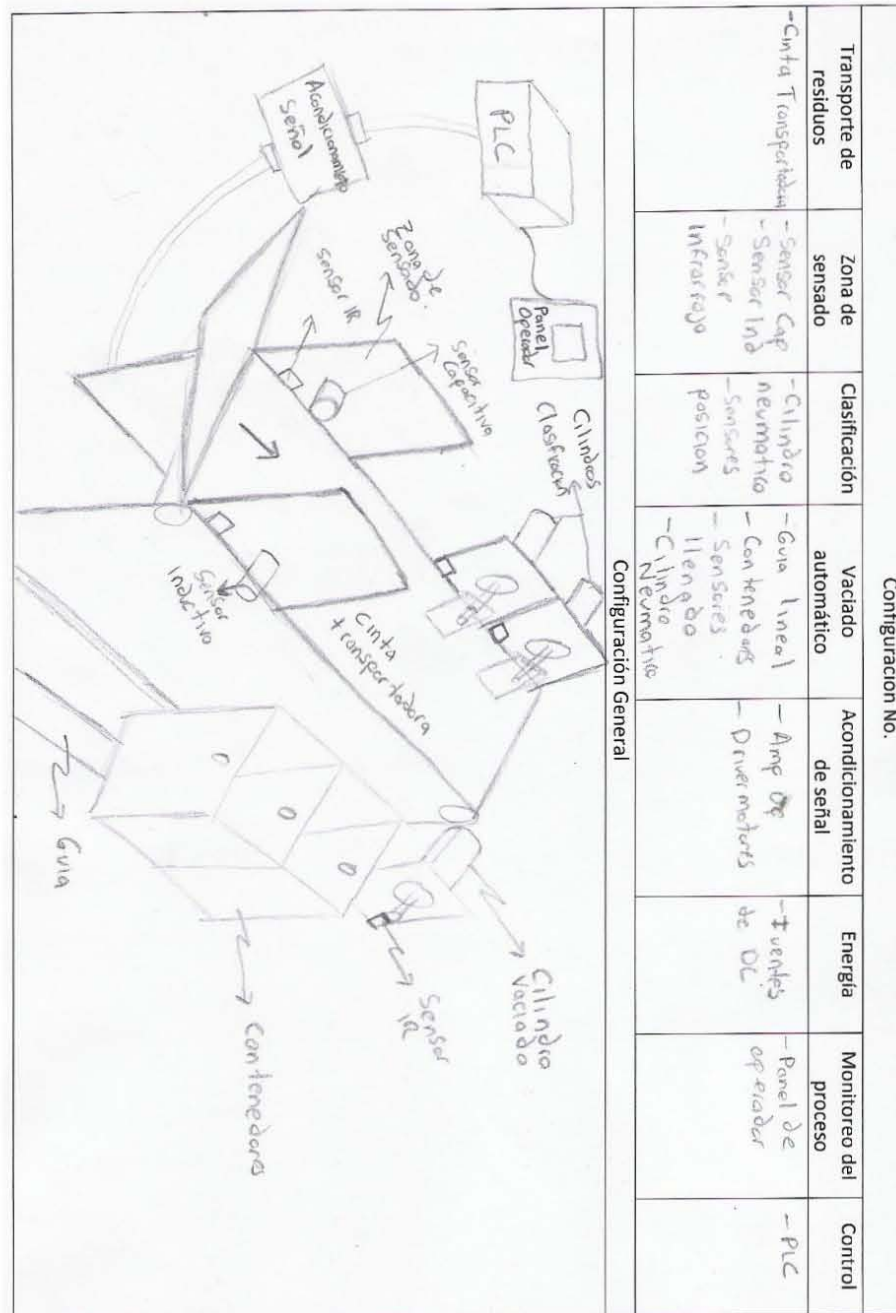 Configuración No.
Transporte de
residuos
Zona de
sensado
Clasificación
Vaciado
automático
Acondicionamiento
de señal
Energía
Monitoreo del
proceso
Control
-Cinta Transportadora
- Sensor Cap
- Sensor Ind
- Sensor
Infrarrojo
- Cilindro
neumatico
- Sensores
posicion
- Guia lineal
- Contenedores
- Sensores
llenado
- Cilindro
Neumatico
- Amp Op
- Driver motores
- Fuentes
de DC
- Panel de
operador
- PLC
Configuración General
PLC
Panel
Operador
Acondicionamiento
Señal
Zona de
Sensado.
Sensor IR
Sensor
Capacitivo
Cilindros
Clasificación
Sensor
Inductivo
Cinta
transportadora
Cilindro
Vaciado
Sensor
IR
Contenedores
Guia